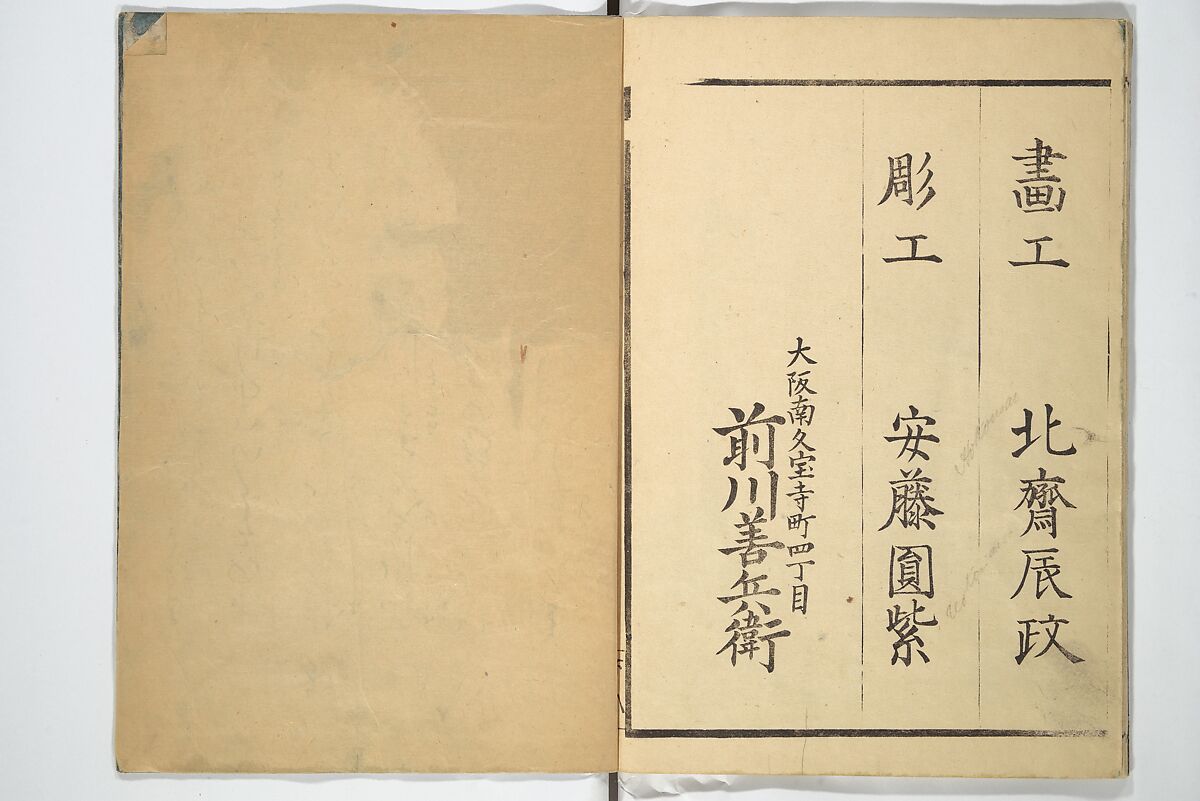 畫工 北齋辰政
彫工 安藤圓紫
大阪南久宝寺町四丁目
前川善兵衛